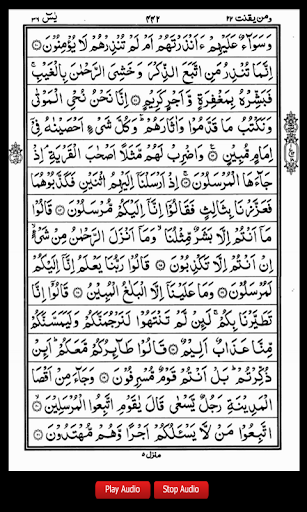 ومن يقنت ٢٢ ٤٤٢ يٰسٓ ٣٦
وَسَوَآءٌ عَلَيْهِمْ ءَاَنْذَرْتَهُمْ اَمْ لَمْ تُنْذِرْهُمْ لَا يُؤْمِنُوْنَ ۝
اِنَّمَا تُنْذِرُ مَنِ اتَّبَعَ الذِّكْرَ وَخَشِىَ الرَّحْمٰنَ بِالْغَيْبِ ۚ
فَبَشِّرْهُ بِمَغْفِرَةٍ وَّاَجْرٍ كَرِيْمٍ ۝ اِنَّا نَحْنُ نُحْىِ الْمَوْتٰى
وَنَكْتُبُ مَا قَدَّمُوْا وَاٰثَارَهُمْ ؕ وَكُلَّ شَىْءٍ اَحْصَيْنٰهُ فِىْۤ
اِمَامٍ مُّبِيْنٍ ۝ وَاضْرِبْ لَهُمْ مَّثَلًا اَصْحٰبَ الْقَرْيَةِ ۘ اِذْ
جَآءَهَا الْمُرْسَلُوْنَ ۝ اِذْ اَرْسَلْنَاۤ اِلَيْهِمُ اثْنَيْنِ فَكَذَّبُوْهُمَا
فَعَزَّزْنَا بِثَالِثٍ فَقَالُوْۤا اِنَّاۤ اِلَيْكُمْ مُّرْسَلُوْنَ ۝ قَالُوْا
مَاۤ اَنْتُمْ اِلَّا بَشَرٌ مِّثْلُنَا ۙ وَمَاۤ اَنْزَلَ الرَّحْمٰنُ مِنْ شَىْءٍ ۙ
اِنْ اَنْتُمْ اِلَّا تَكْذِبُوْنَ ۝ قَالُوْا رَبُّنَا يَعْلَمُ اِنَّاۤ اِلَيْكُمْ
لَمُرْسَلُوْنَ ۝ وَمَا عَلَيْنَاۤ اِلَّا الْبَلٰغُ الْمُبِيْنُ ۝ قَالُوْۤا اِنَّا
تَطَيَّرْنَا بِكُمْ ۚ لَئِنْ لَّمْ تَنْتَهُوْا لَنَرْجُمَنَّكُمْ وَلَيَمَسَّنَّكُمْ
مِّنَّا عَذَابٌ اَلِيْمٌ ۝ قَالُوْا طَآئِرُكُمْ مَّعَكُمْ ؕ اَئِنْ
ذُكِّرْتُمْ ؕ بَلْ اَنْتُمْ قَوْمٌ مُّسْرِفُوْنَ ۝ وَجَآءَ مِنْ اَقْصَا
الْمَدِيْنَةِ رَجُلٌ يَّسْعٰى قَالَ يٰقَوْمِ اتَّبِعُوا الْمُرْسَلِيْنَ ۝
اتَّبِعُوْا مَنْ لَّا يَسْئَلُكُمْ اَجْرًا وَّهُمْ مُّهْتَدُوْنَ ۝
منزل ٥
Play Audio Stop Audio